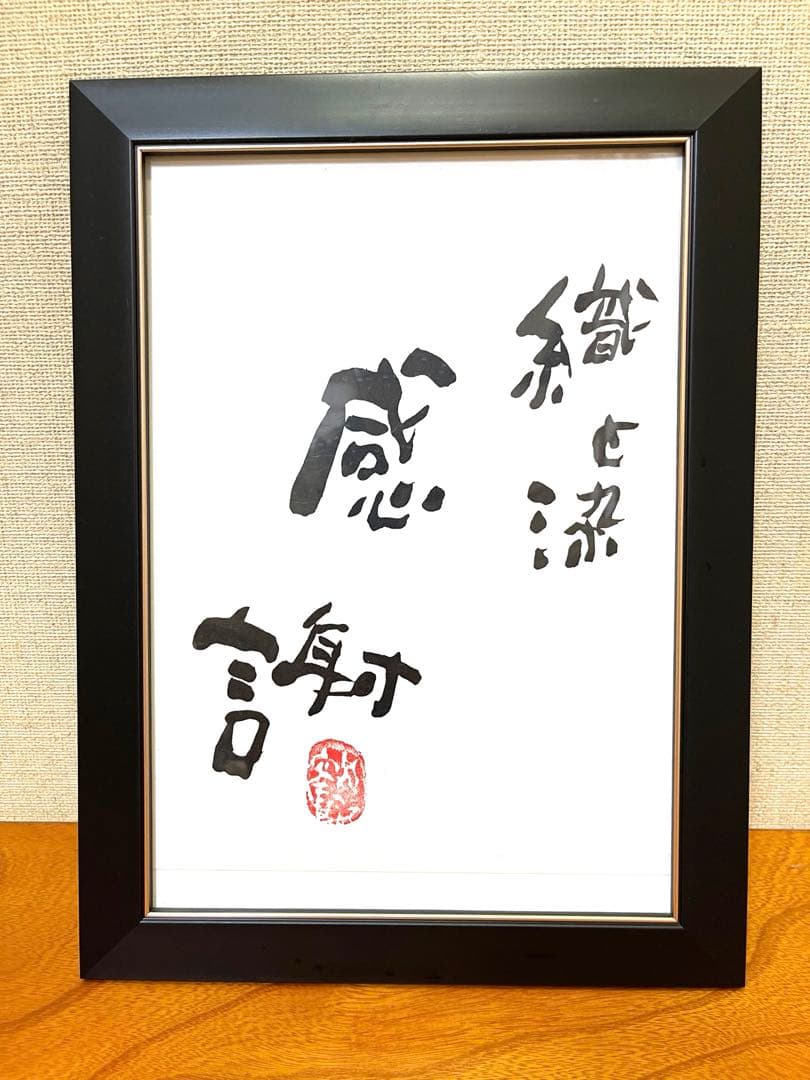 織と染
感謝